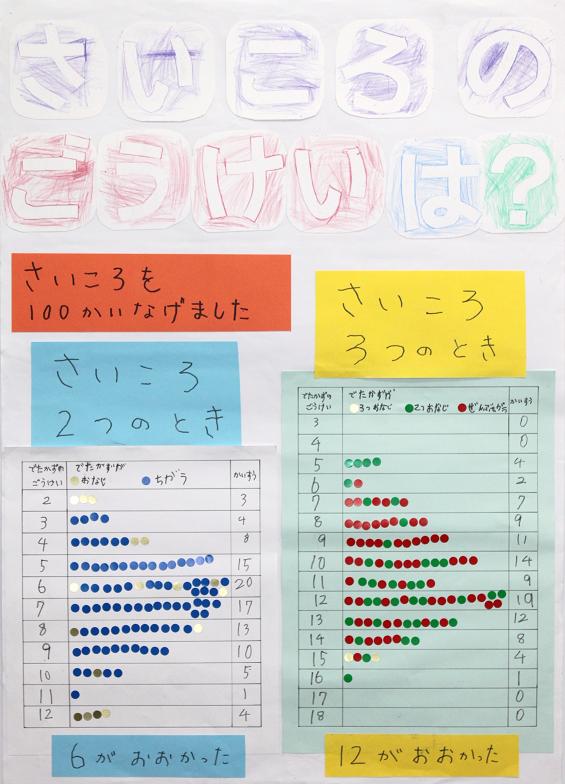 さいころの
ごうけいは?
さいころを
100かいなげました
さいころ
2つのとき
でたかずの
ごうけい
でたかずが
おなじ ちがう
かいすう
2 3
3 4
4 8
5 15
6 20
7 17
8 13
9 10
10 5
11 1
12 4
6がおおかった
さいころ
3つのとき
でたかずの
ごうけい
でたかずが
3つおなじ 2つおなじ ぜんぶちがう
かいすう
3 0
4 0
5 4
6 2
7 7
8 9
9 11
10 14
11 9
12 19
13 12
14 8
15 4
16 1
17 0
18 0
12がおおかった